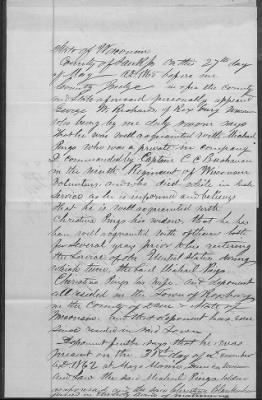 State of Wisconsin
County of Sauk } On this 27th day
of May before me
County Judge in & for the county
and State aforesaid personally appeared
George W. Richards of Roxbury
who being by me duly sworn says
that he was well acquainted with Michael
Rings who was a private in company
D commanded by Captain C A Buchanan
in the ninth Regiment of Wisconsin
Volunteers and who died while in said
Service as he is informed and believes
that he is well acquainted with
Christine Rings his widow, that he has
been well acquainted with of them both
for several years prior to his entering
the service of the United States during
which time, the said Michael Rings
Christine Rings his wife and deponent
all resided in the Town of Roxbury
in the County of Dane & State of
Wisconsin and that deponent has ever
since resided in said Town
Deponent further says that he was
present on the 28th day of December
AD 1862 at
and saw the said Michael Rings
and the said Christine
joined in the bonds of matrimony